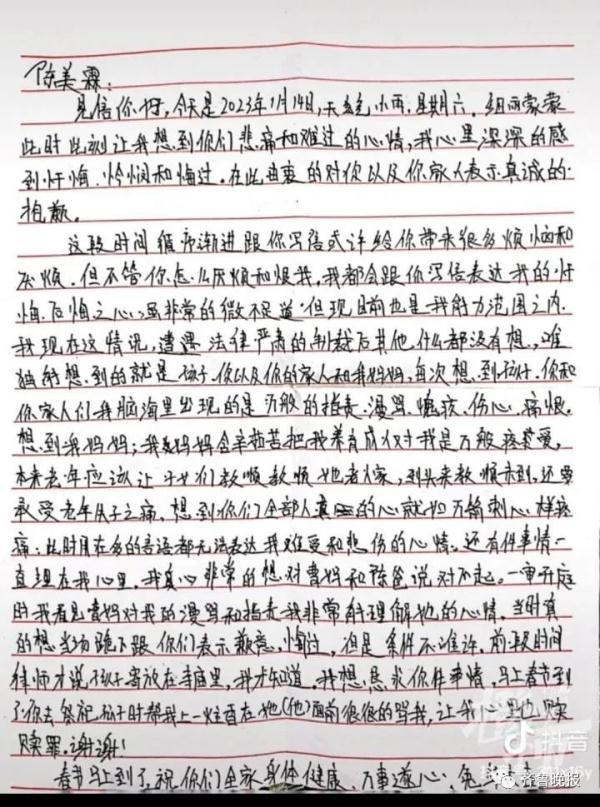 陈美霖:
见信你好,今天是2023年1月14日,天气小雨,星期六。细雨蒙蒙
此时此刻让我想到你们悲痛和难过的心情,我心里深深的感
到忏悔、怜悯和悔过。在此由衷的对你以及你家人表示真诚的
抱歉。
这段时间循序渐进跟你写信或许给你带来很多烦恼和
厌烦。但不管你怎么厌烦和恨我,我都会跟你写信表达我的忏
悔、后悔之心。虽非常的微不足道但现目前也是我能力范围之内。
我现在这情况,遭遇法律严肃的制裁后其他什么都没有想,唯
独能想到的就是孩子、你以及你的家人和我妈妈,每次想到孩子、你和
你家人们我脑海里出现的是万般的指责、漫骂、懊疚、伤心、痛恨。
想到我妈妈;我妈妈含辛茹苦把我养育成人对我是万般疼爱,
本来老年应该让子女们教顺教顺她老人家,到头来教顺未到,还要
承受老年失子之痛。想到你们全部人的心就如万箭刺心一样疼
痛;此时用在多的言语都无法表达我难受和悲伤的心情。还有件事情一
直埋在我心里,我真心非常的想对曹妈和陈爸说对不起。一审开庭
时我看见曹妈对我的漫骂和指责我非常能理解她的心情。当时真
的想当场跪下跟你们表示歉意、悔过,但是条件不准许。前段时间
律师才说孩子寄放在寺庙里,我才知道。我想恳求你件事情,马上春节到
了你去祭祀孩子时帮我上一炷香在她(他)面前很很的骂我,让我心里也赎
赎罪。谢谢!
春节马上到了,祝你们全家身体健康、万事遂心、兔
抖音
齐鲁晚报